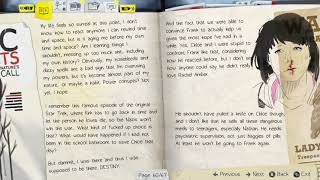 C
TS
NATURE'S
CALL
My life feels so surreal at this point, I don't
know how to react anymore. I can rewind time
and space, but is it aging me before my own
time and space? Am I learning things I
shouldn't, messing up too much info, including
my own history? Obviously, my nosebleeds and
dizzy spells are a bad sign that I'm overusing
my powers, but it's become almost part of my
nature, or maybe a habit. Power corrupts? Not
yet, I hope.
I remember this famous episode of the original
Star Trek, where Kirk has to go back in time and
let the person he loves die, so the Nazis won't
win the war. What kind of fucked up choice is
that? What would have happened if I had not
been in the school bathroom to save Chloe that
day?
But dammit, I was there and thus I was
supposed to be there. DESTINY.
Page 60/67
And the fact that we were able to
convince Frank to actually help us
gives me the most hope I've had in a
while. Yes, Chloe and I were stupid to
confront Frank like that, considering
how he reacted before, but I don't see
how anyone could say he didn't really love
Rachel Amber.
He shouldn't have pulled a knife on Chloe though,
and I don't like that he sells all these dangerous
meds to teenagers, especially Nathan. He needs
psychiatric supervision, not just baggies of pills.
At least he won't be going to Frank again.
LADY
Next
Back